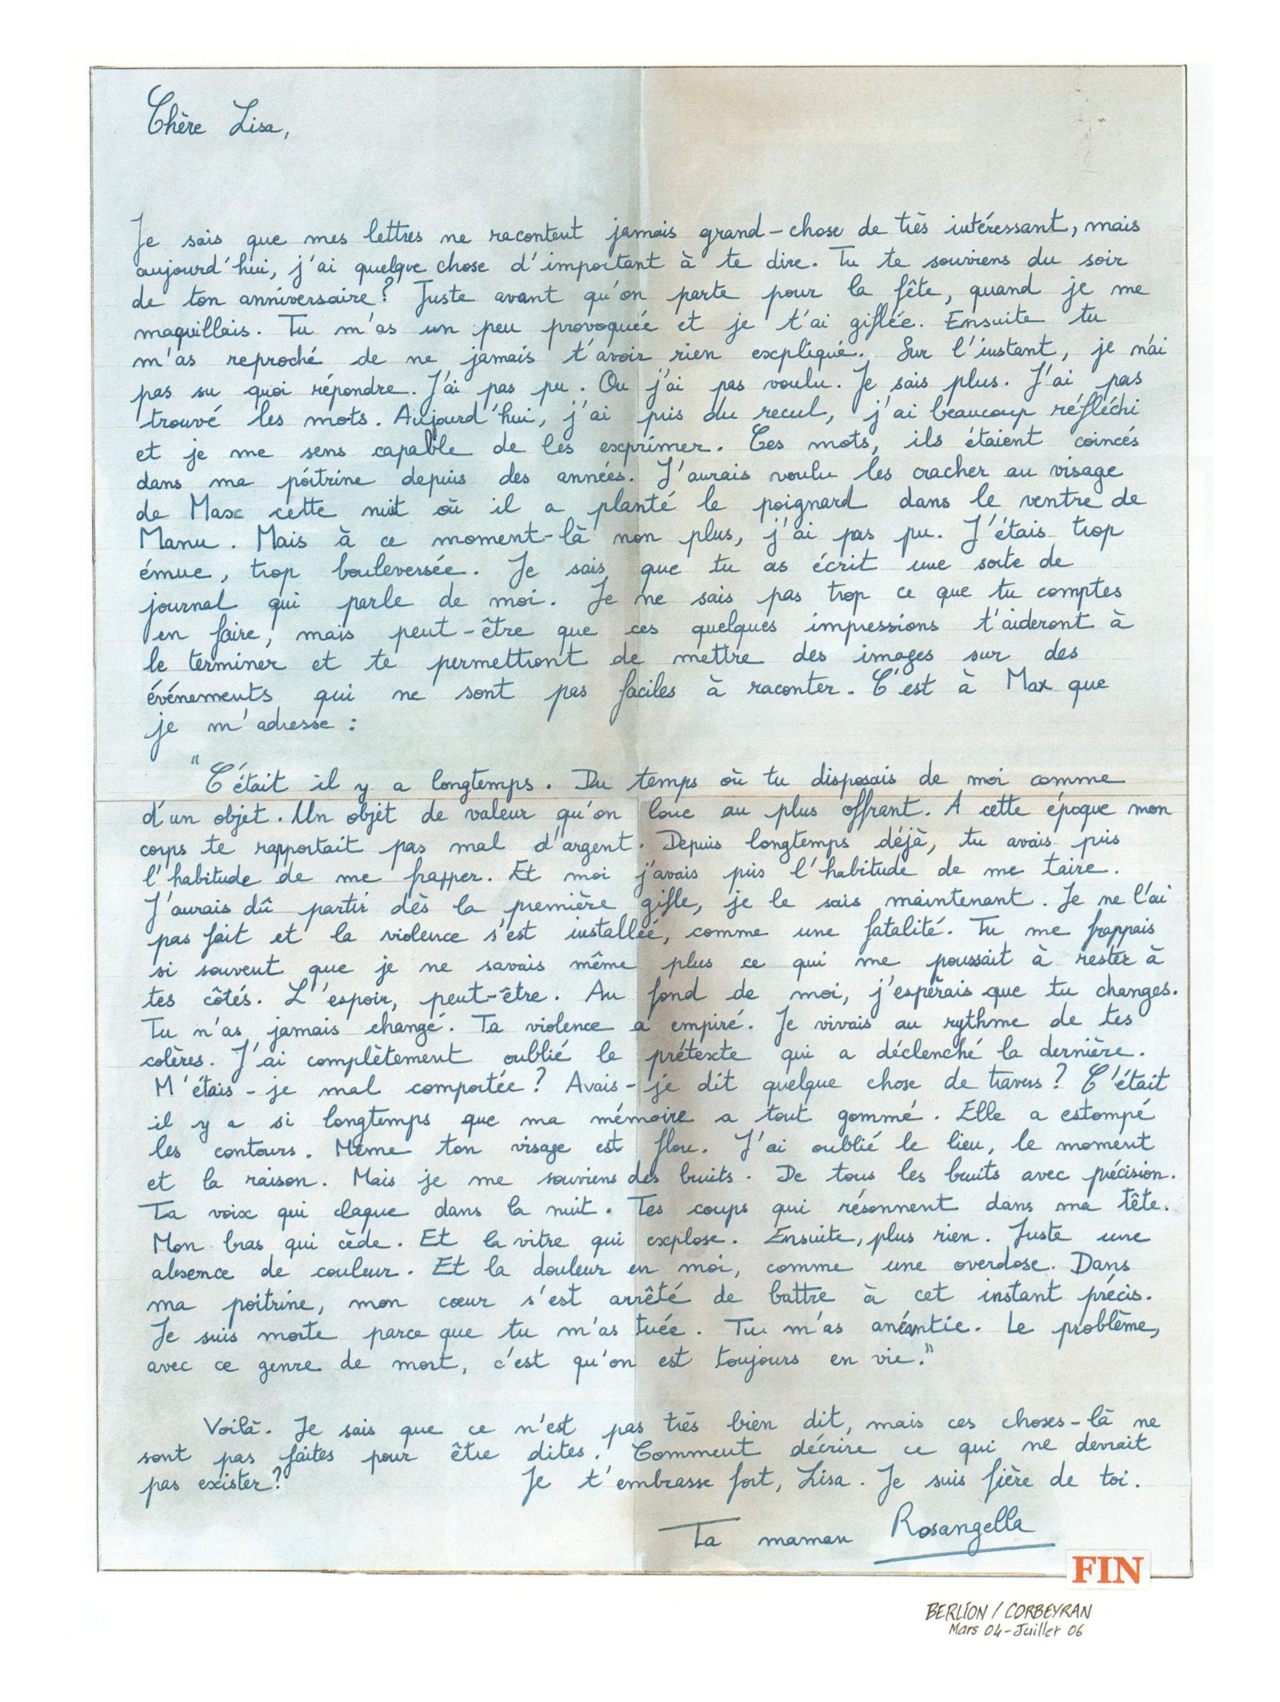 Chère Lisa,
Je sais que mes lettres ne racontent jamais grand-chose de très intéressant, mais
aujourd'hui, j'ai quelque chose d'important à te dire. Tu te souviens du soir
de ton anniversaire? Juste avant qu'on parte pour la fête, quand je me
maquillais. Tu m'as un peu provoquée et je t'ai giflée. Ensuite tu
m'as reproché de ne jamais t'avoir rien expliqué. Sur l'instant, je n'ai
pas su quoi répondre. J'ai pas pu. Ou j'ai pas voulu. Je sais plus. J'ai pas
trouvé les mots. Aujourd'hui, j'ai pris du recul, j'ai beaucoup réfléchi
et je me sens capable de les exprimer. Ces mots, ils étaient coincés
dans ma poitrine depuis des années. J'aurais voulu les cracher au visage
de Max cette nuit où il a planté le poignard dans le ventre de
Manu. Mais à ce moment-là non plus, j'ai pas pu. J'étais trop
émue, trop bouleversée. Je sais que tu as écrit une sorte de
journal qui parle de moi. Je ne sais pas trop ce que tu comptes
en faire, mais peut-être que ces quelques impressions t'aideront à
le terminer et te permettront de mettre des images sur des
événements qui ne sont pas faciles à raconter. C'est à Max que
je m'adresse :
"C'était il y a longtemps. Du temps où tu disposais de moi comme
d'un objet. Un objet de valeur qu'on loue au plus offrant. A cette époque mon
corps te rapportait pas mal d'argent. Depuis longtemps déjà, tu avais pris
l'habitude de me frapper. Et moi j'avais pris l'habitude de me taire.
J'aurais dû partir dès la première gifle, je le sais maintenant. Je ne l'ai
pas fait et la violence s'est installée, comme une fatalité. Tu me frappais
si souvent que je ne savais même plus ce qui me poussait à rester à
tes côtés. L'espoir, peut-être. Au fond de moi, j'espérais que tu changes.
Tu n'as jamais changé. Ta violence a empiré. Je vivais au rythme de tes
colères. J'ai complètement oublié le prétexte qui a déclenché la dernière.
M'étais-je mal comportée? Avais-je dit quelque chose de travers? C'était
il y a si longtemps que ma mémoire a tout gommé. Elle a estompé
les contours. Même ton visage est flou. J'ai oublié le lieu, le moment
et la raison. Mais je me souviens des bruits. De tous les bruits avec précision.
Ta voix qui claque dans la nuit. Tes coups qui résonnent dans ma tête.
Mon bras qui cède. Et la vitre qui explose. Ensuite, plus rien. Juste une
absence de couleur. Et la douleur en moi, comme une overdose. Dans
ma poitrine, mon cœur s'est arrêté de battre à cet instant précis.
Je suis morte parce que tu m'as tuée. Tu m'as anéantie. Le problème,
avec ce genre de mort, c'est qu'on est toujours en vie."
Voilà. Je sais que ce n'est pas très bien dit, mais ces choses-là ne
sont pas faites pour être dites. Comment décrire ce qui ne devrait
pas exister? Je t'embrasse fort, Lisa. Je suis fière de toi.
Ta maman Rosangella
FIN
BERLION / CORBEYRAN
Mars 04-Juillet 06